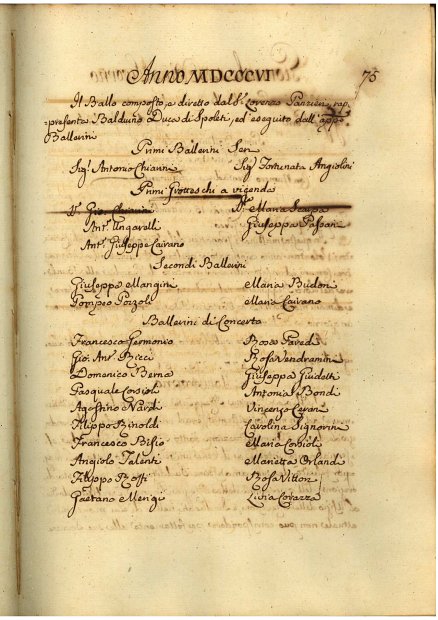 Anno MDCCCVI 75
Il Ballo composto, e diretto dal Sr. Lorenzo Panzieri, rap=
=presenta Balduino Duca di Spoleti, ed eseguito dall'
Ballerini
Primi Ballerini Seri
Sigr. Antonio Chiarini Siga. Fortunata Angiolini
Primi Grotteschi a vicenda
Gio. Chiarini Maria Scarpa
Ant. Ungarelli Giuseppa Passani
Ant. Giuseppe Cairano
Secondi Ballerini
Giuseppe Mangini Maria Budon
Pompeo Pozoli Maria Cairano
Ballerini di Concerto
Francesco Germonio Rosa Paredi
Gio. Ant. Bicci Rosa Vendramin
Domenico Berna Giuseppa Giudetti
Pasquale Corsioli Antonia Bondi
Agostino Nardi Vincenzo Ceroni
Filippo Rinoldi Carolina Signorini
Francesco Bisio Maria Corsioli
Angiolo Talenti Marietta Orlandi
Filippo Rossi Rosa Vittori
Gaetano Mengi Livia Corazza